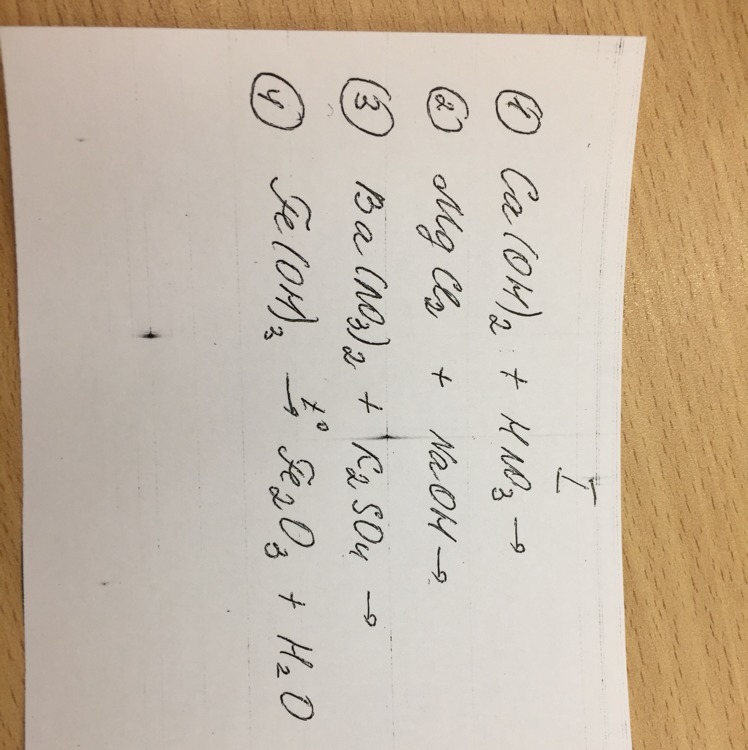 I
① Ca(OH)₂ + HNO₃ →
② MgCl₂ + NaOH →
③ Ba(NO₃)₂ + K₂SO₄ →
④ Fe(OH)₃ →t° Fe₂O₃ + H₂O